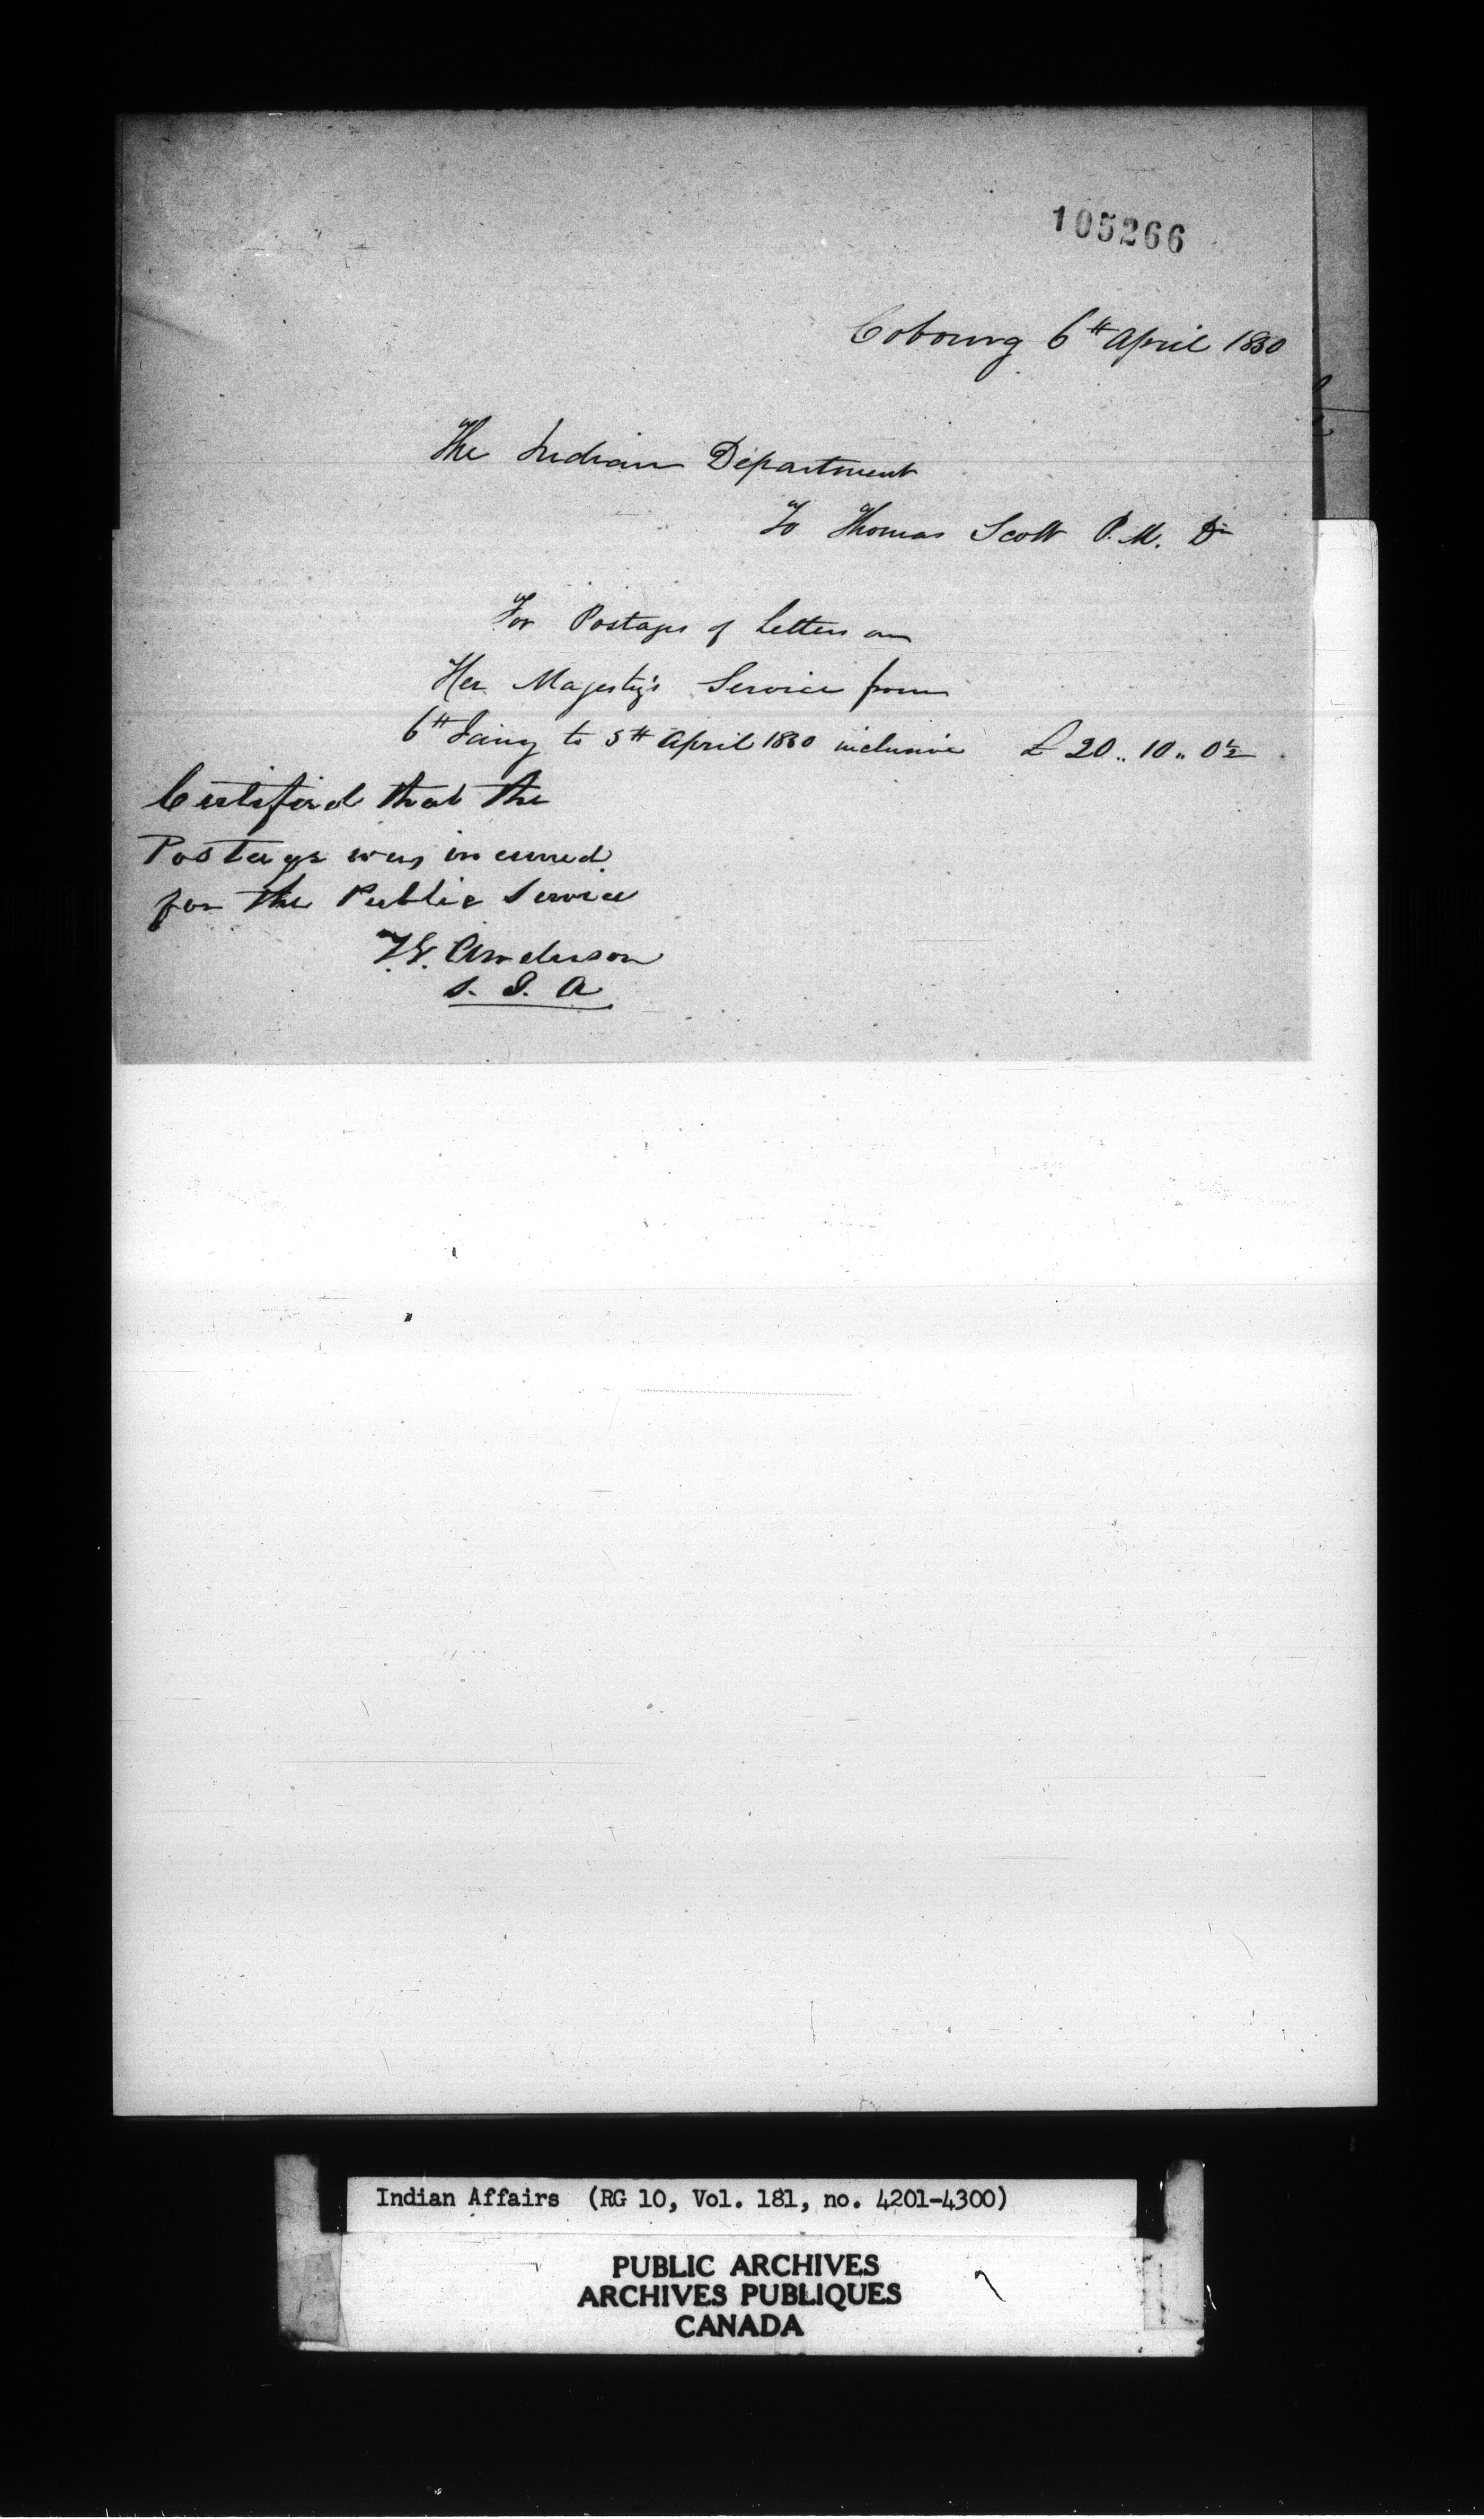 105266
Cobourg 6th April 1850
The Indian Department
To Thomas Scott P.M. Dr
For Postages of Letters on
Her Majesty's Service from
6th Jany to 5th April 1850 inclusive £ 20 .. 10 .. 0½
Certified that the
Postage was incurred
for the Public Service
T.G. Anderson
S. I. A
Indian Affairs (RG 10, Vol. 181, no. 4201-4300)
PUBLIC ARCHIVES
ARCHIVES PUBLIQUES
CANADA